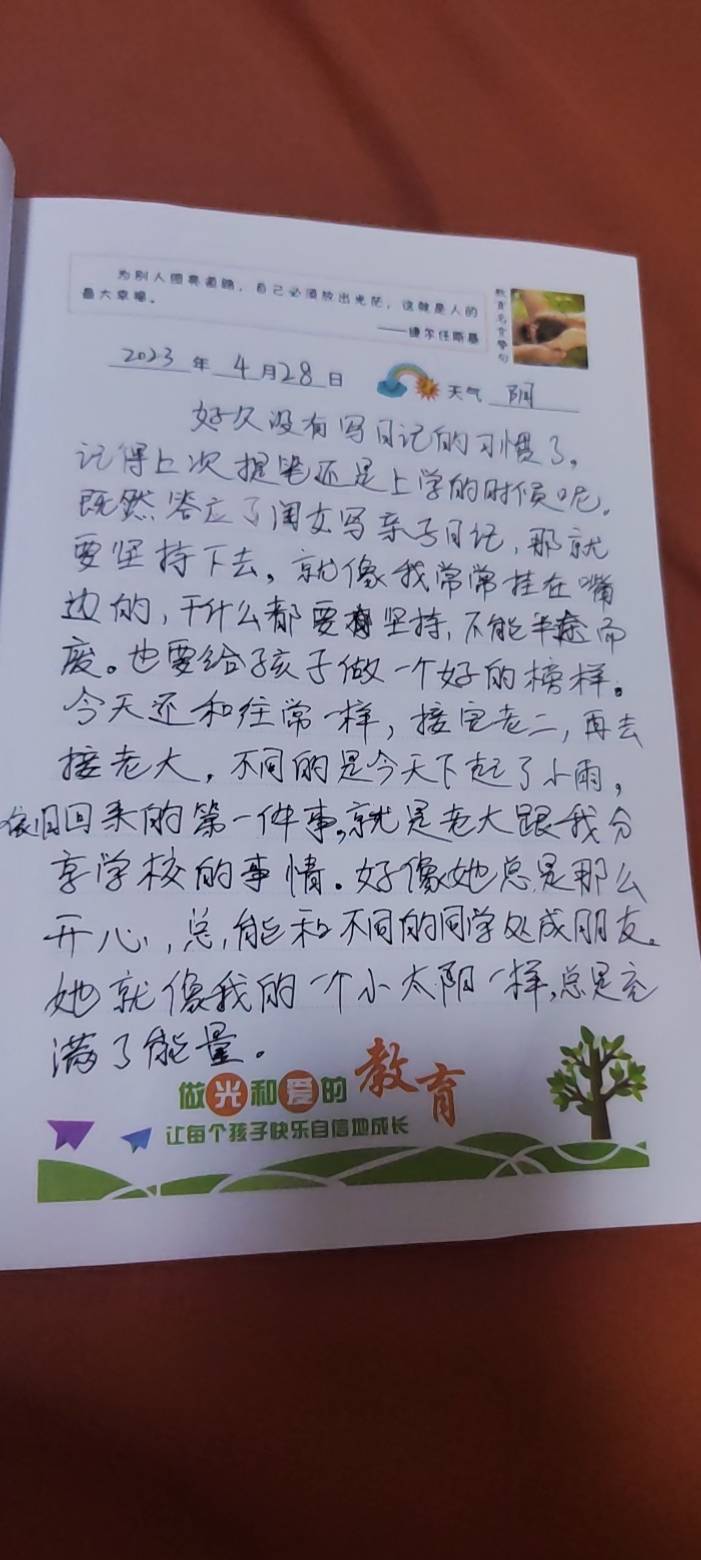 为别人照亮道路，自己必须放出光芒，这就是人的
最大幸福。
——捷尔任斯基
教育名言警句
2023年4月28日 天气 阴
好久没有写日记的习惯了。
记得上次提笔还是上学的时候呢。
既然答应了闺女写亲子日记，那就
要坚持下去。就像我常常挂在嘴
边的，干什么都要坚持，不能半途而
废。也要给孩子做一个好的榜样。
今天还和往常一样，接完老二，再去
接老大，不同的是今天下起了小雨，
依旧回来的第一件事，就是老大跟我分
享学校的事情。好像她总是那么
开心，总能和不同的同学处成朋友。
她就像我的一个小太阳一样，总是充
满了能量。
做光和爱的教育
让每个孩子快乐自信地成长